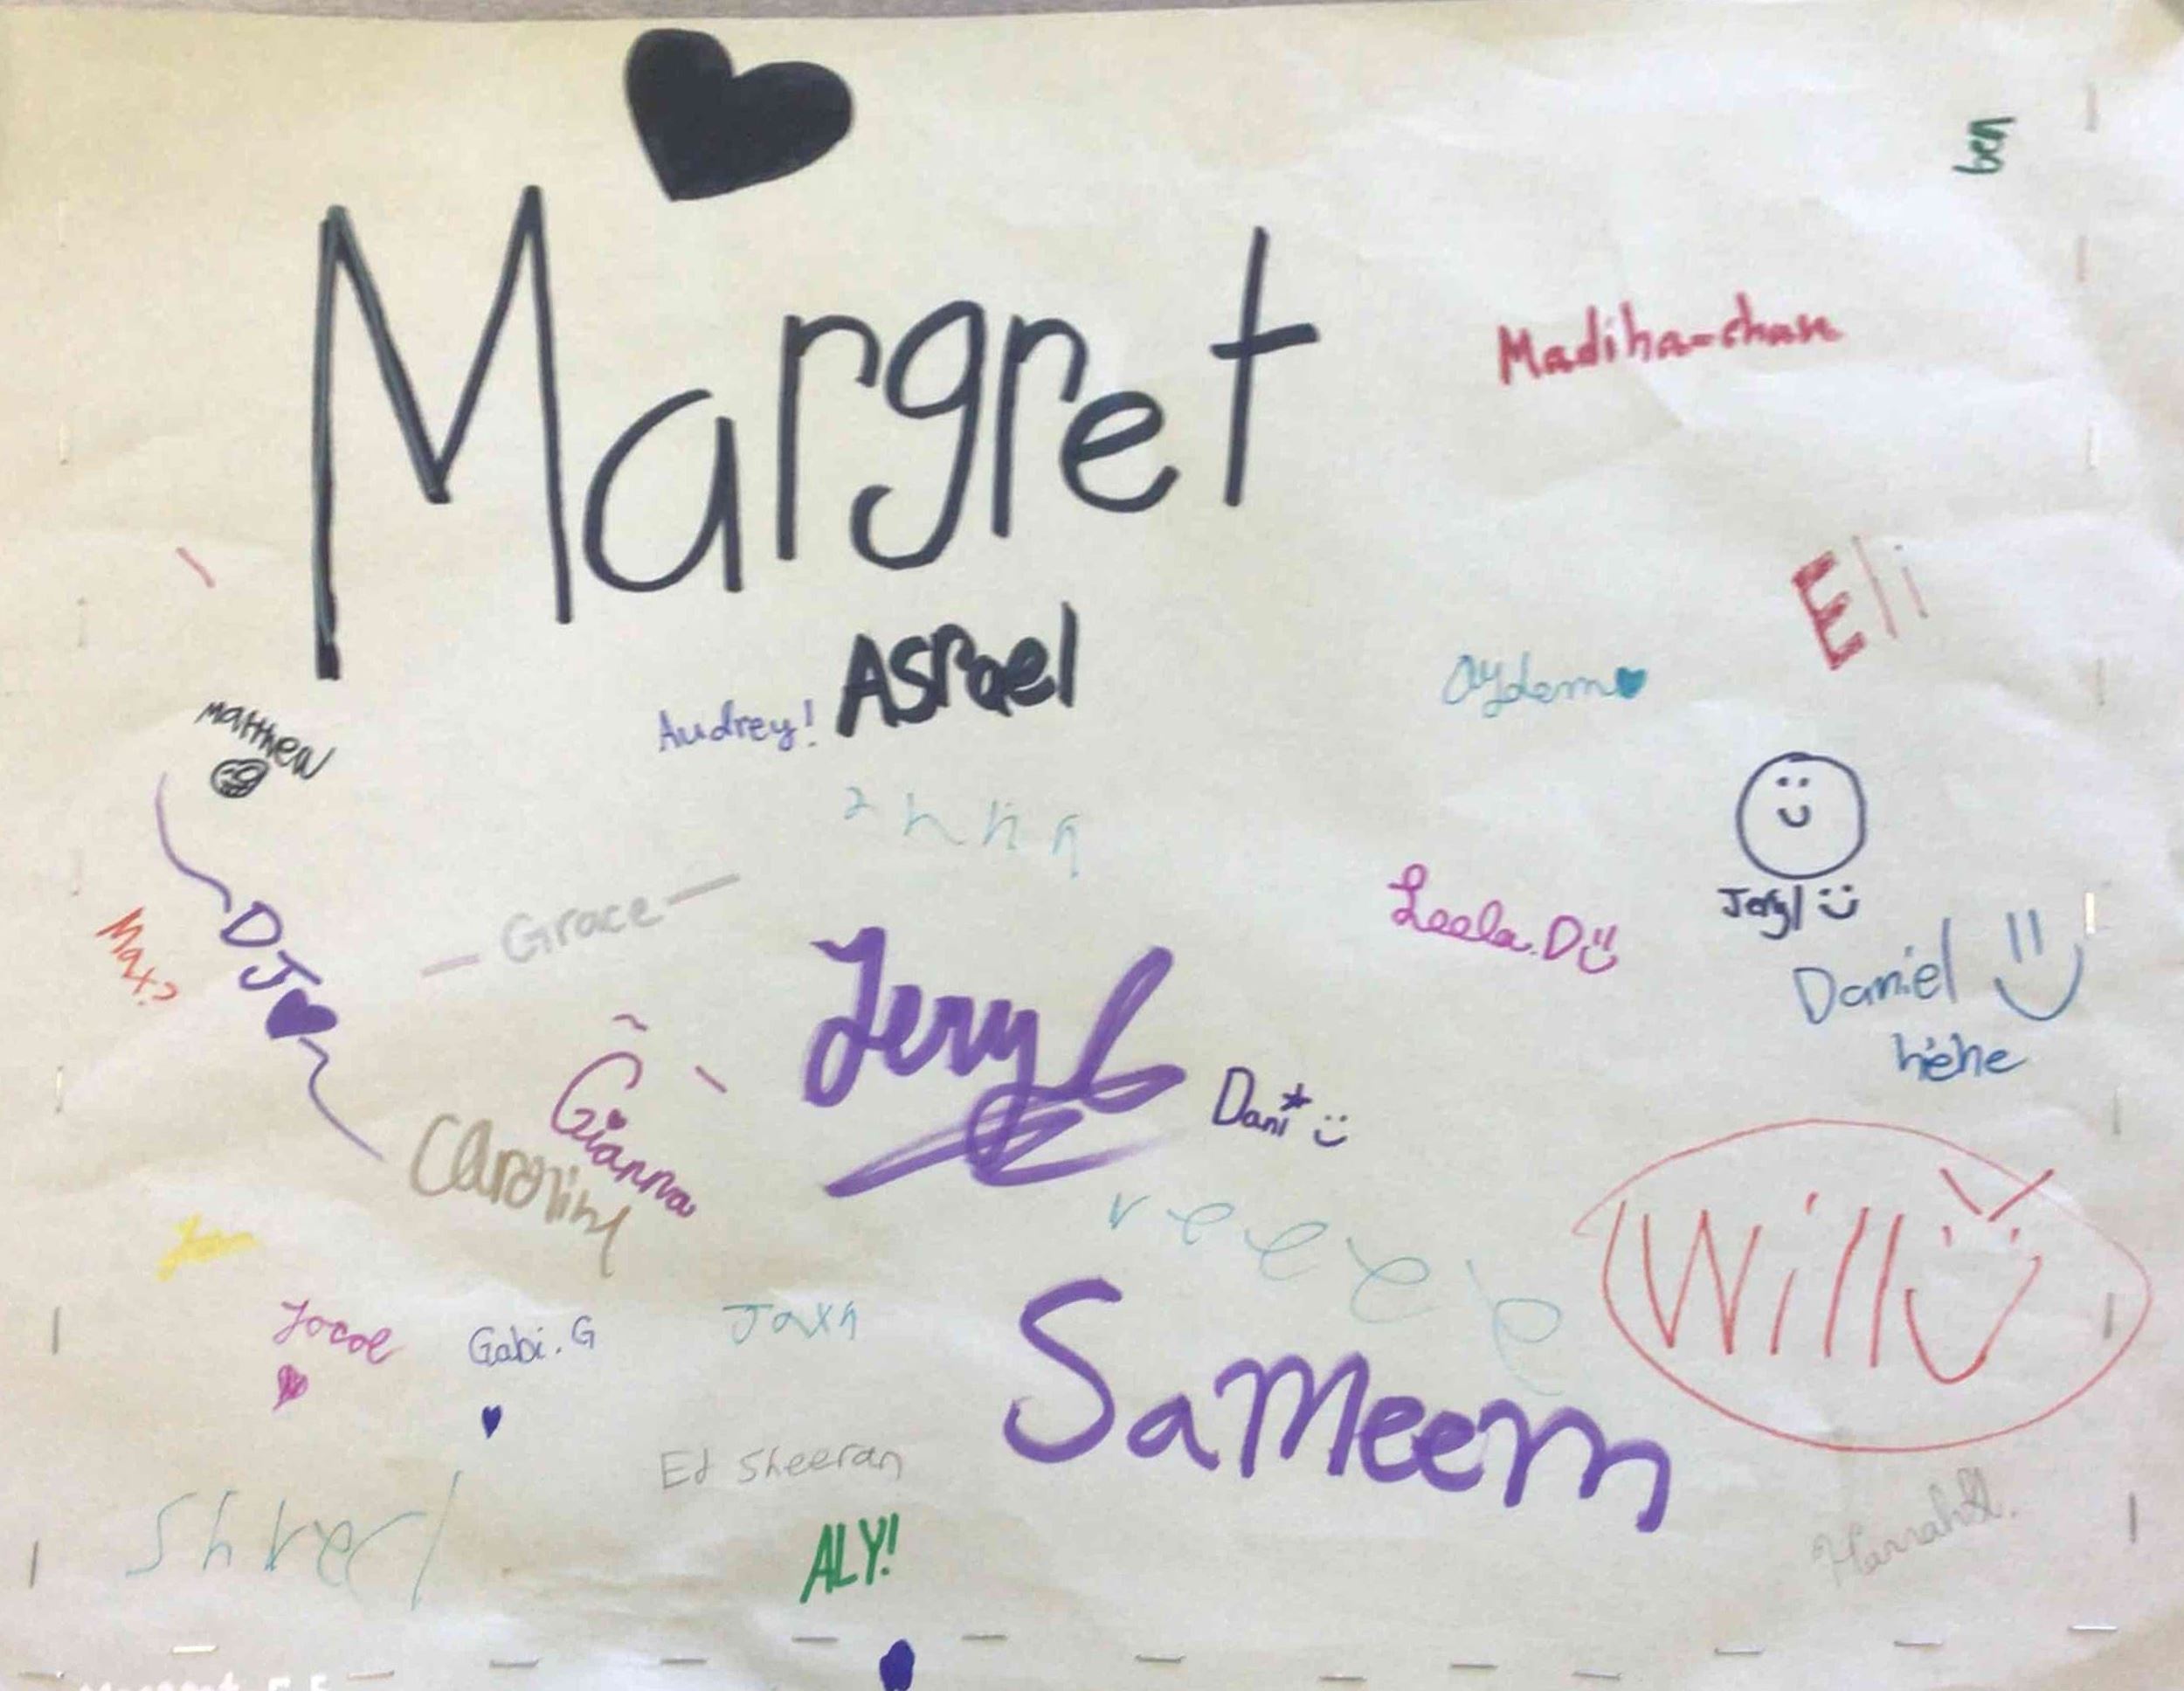 ben
Margret
Madiha-chan
Eli
Asrael
Aydem
Audrey!
Matthew
Jeryl
Leela.D
Grace
DJ
Max?
Daniel
hehe
Jeryl
Dani
Gianna
Caroline
reeee
Will
Jocol
Gabi.G
Jaxn
Sameem
Ed Sheeran
Shrek
ALY!